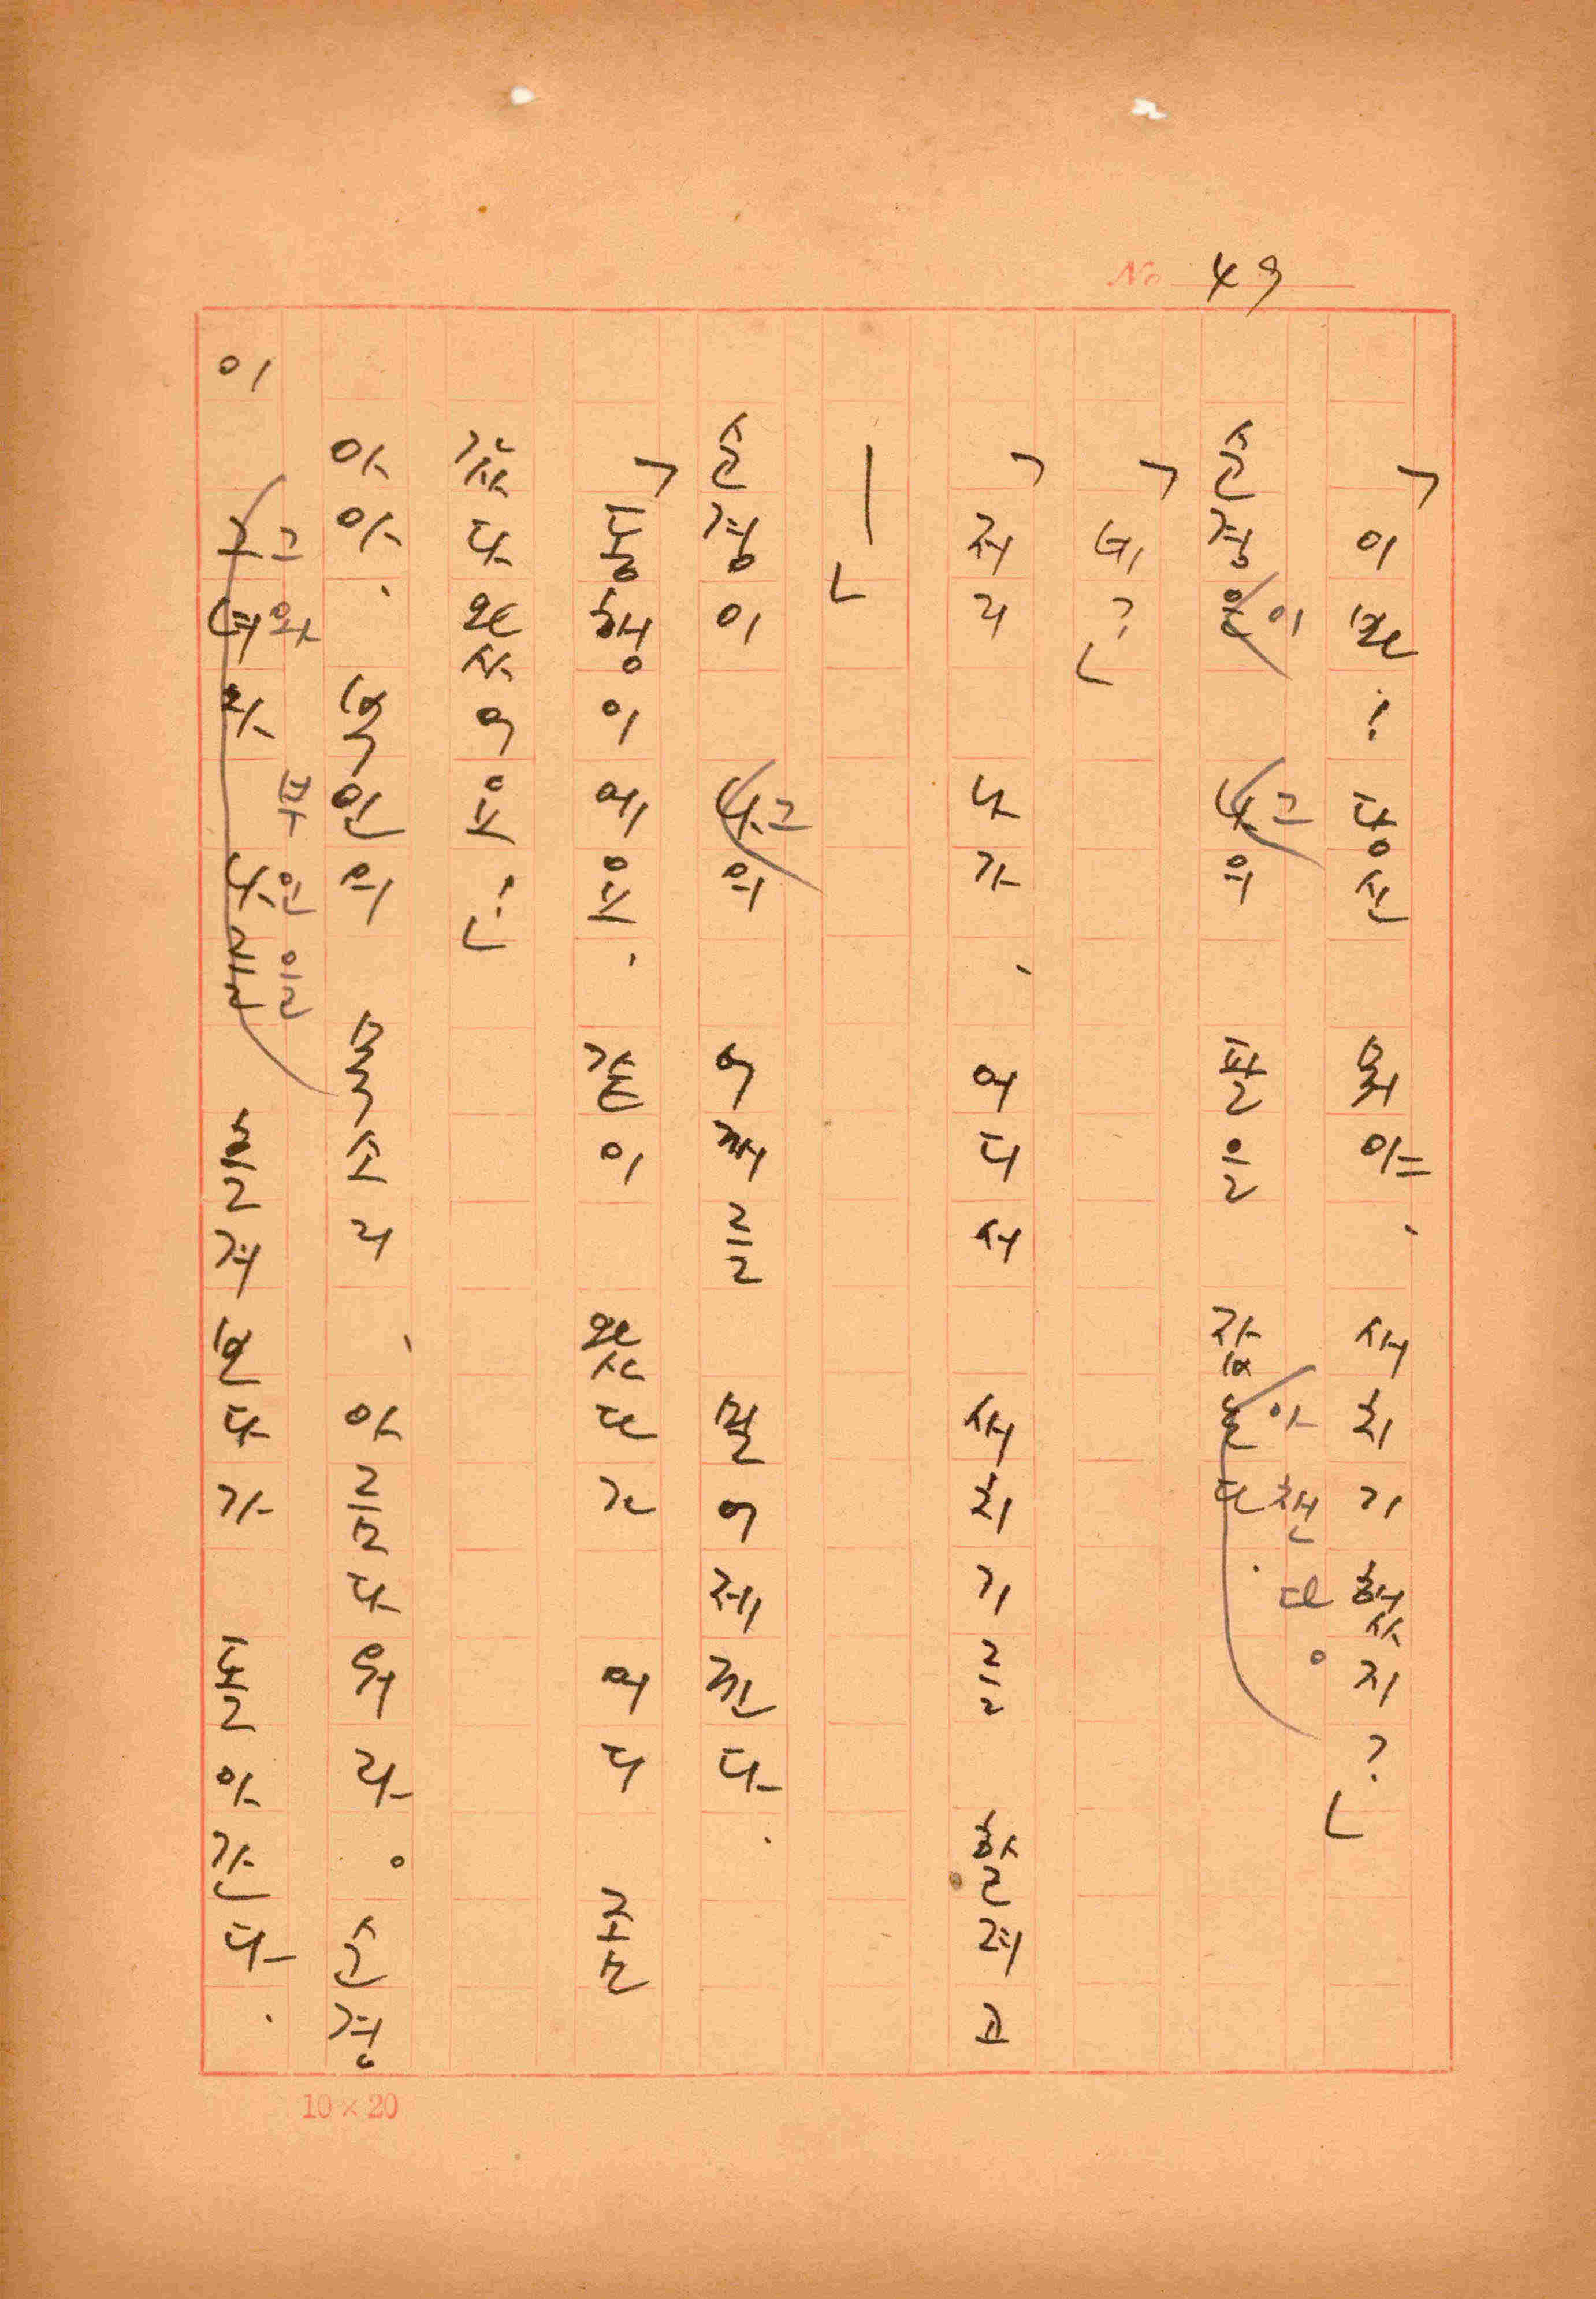 No 49
「이봐? 당신 뭐야、 새치기했지?」
순경은이 나그의 팔을 잡는다.아챈다。
「네?」
「저리 나가、 어디서 새치기를 할려고
―」
순경이 나그의 어깨를 밀어제낀다.
「동행이에요. 같이 왔다가 어디 좀
갔다 왔어요!」
아아、 부인의 목소리、 아름다워라。 순경
이 그녀와 나를 그와 부인을 흘겨보다가 돌아간다.
10×20